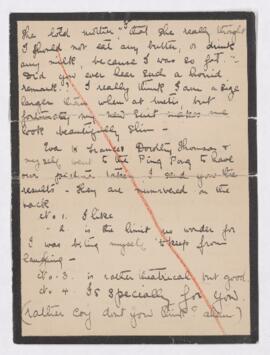 She told mother "that she really thought
I should not eat any butter, or drink
any milk, because I was so fat."
Did you ever hear such a horrid
remark? I really think I am a size
larger than when at            but
fortunately my new suit makes me
look beautifully slim —
Eva & Frances Dorothy Thomson &
myself went to the Ping Pong to have
our pictures taken I send you the
results — They are numbered in the
back
No 1. I like
- 2. is the limit no wonder for
I was biting myself to keep from
laughing —
No. 3. is rather theatrical but good
No. 4. Is specially for you.
(rather coy don't you think "ahem")